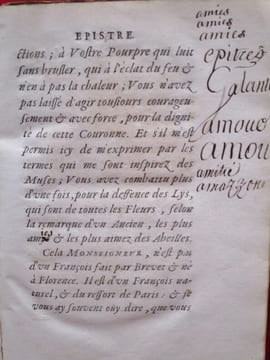 EPISTRE.
ctions; à Vostre Pourpre qui luit
sans brusler, qui à l'éclat du feu &
n'en à pas la chaleur; Vous n'avez
pas laissé d'agir tousiours courageu-
sement & avec force, pour la digni-
té de cette Couronne. Et s'il m'est
permis icy de m'exprimer par les
termes qui me sont inspirez des
Muses; Vous avez combattu plus
d'vne fois, pour la deffence des Lys,
qui sont de toutes les Fleurs, selon
la remarque d'vn Ancien, les plus
& les plus aimez des Abeilles.
Cela MONSEIGNEUR, n'est pas
d'vn François fait par Brevet & né
à Florence. Il est d'vn François na-
turel, & du ressort de Paris: & si
vous ay souvent ony dire, que vous
amies
amies
amies
epitrez
Galant
amoue
amou
amitié
amazzone